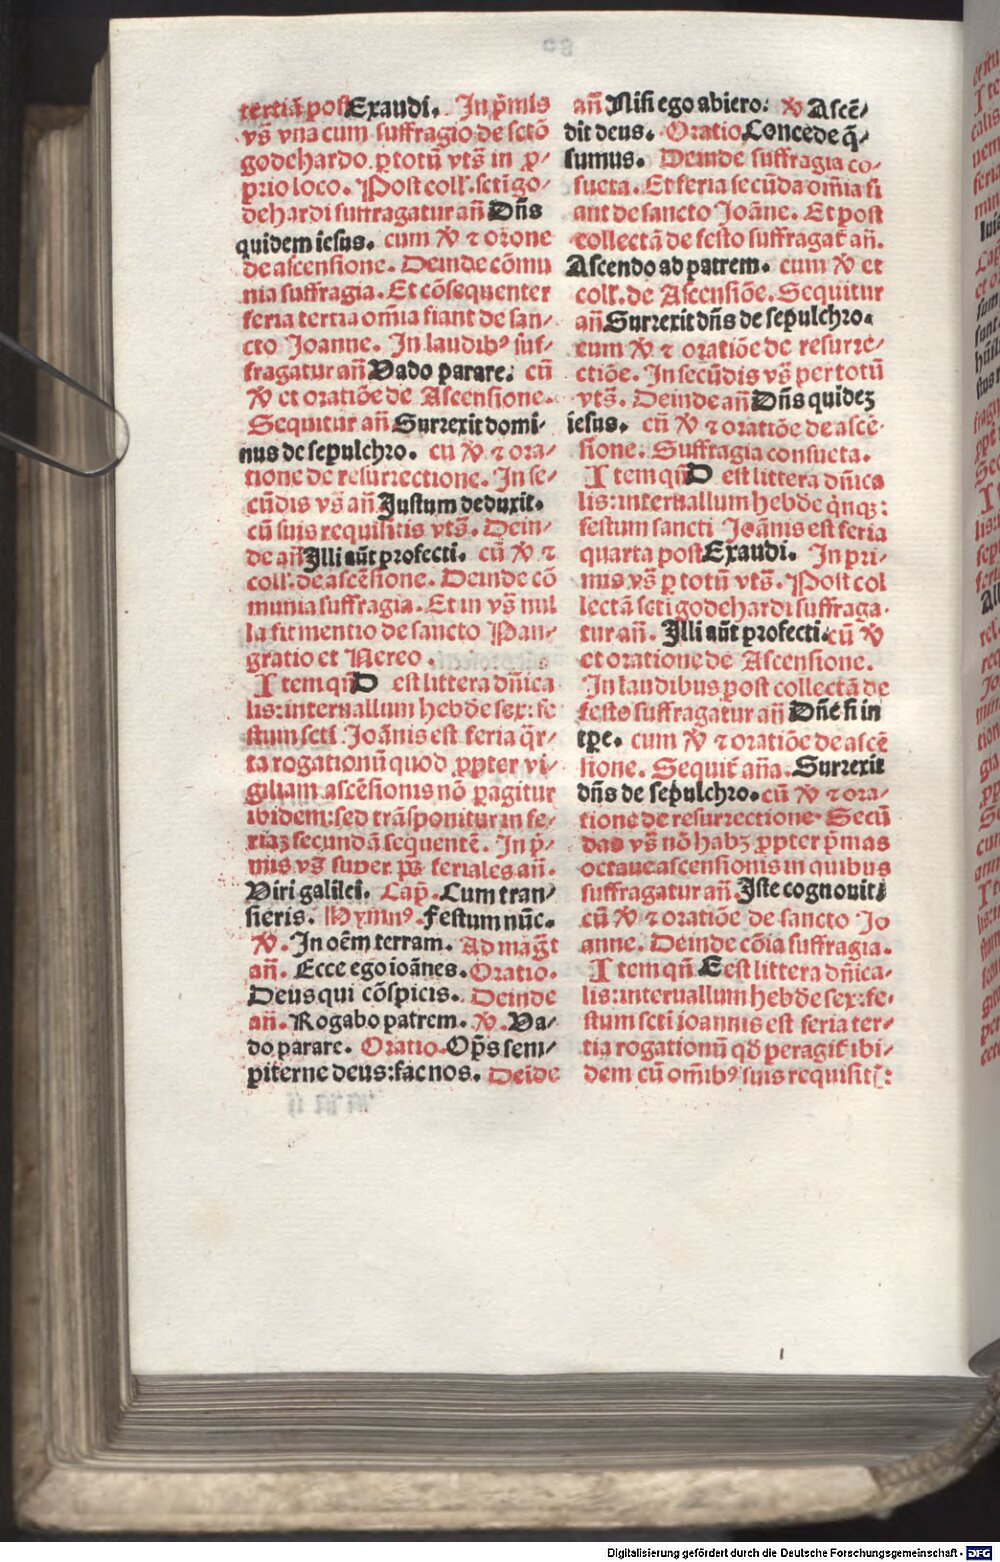 tertiā post Exaudi. In p̄mis
vs̄ vna cum suffragio de sctō
godehardo ꝑ totū vts̄ in ꝓ⸗
prio loco. Post coll̄. scti go⸗
dehardi suffragatur an̄ Dn̄s
quidem iesus. cum ℣ ⁊ orōne
de ascensione. Deinde cōmu
nia suffragia. Et cōsequenter
feria tertia om̄ia fiant de san⸗
cto Joanne. In laudibꝰ suf⸗
fragatur an̄ Vado parare: cū
℣ et oratiōe de Ascensione.
Sequitur an̄ Surrexit domi⸗
nus de sepulchro. cū ℣ ⁊ ora⸗
tione de resurrectione. In se⸗
cūdis vs̄ an̄ Justum deduxit.
cū suis requisitis vts̄. Dein⸗
de an̄ Illi aūt profecti. cū ℣ ⁊
coll̄. de ascēsione. Deinde cō
munia suffragia. Et in vs̄ nul
la fit mentio de sancto Pan⸗
gratio et Nereo.
Item qn̄ D est littera dn̄ica
lis: interuallum hebdē sex: fe
stum scti Joānis est feria q̄r⸗
ta rogationū quod ꝓpter vi⸗
giliam ascēsionis nō ꝑagitur
ibidem: sed trāsponitur in fe⸗
riaꝫ secundā sequentē. In p̄⸗
mis vs̄ super ps̄ feriales an̄.
Viri galilei. Cap̄. Cum tran⸗
sieris. Hymnꝰ. Festum nūc.
℣. In oēm terram. Ad maḡt
an̄. Ecce ego ioānes. Oratio.
Deus qui cōspicis. Deinde
an̄. Rogabo patrem. ℣. Va⸗
do parare. Oratio. Op̄s sem⸗
piterne deus: fac nos. Deīde
an̄ Nisi ego abiero: ℣ Ascē⸗
dit deus. Oratio Concede q̄⸗
sumus. Deinde suffragia co⸗
sueta. Et feria secūda om̄ia fi
ant de sancto Joāne. Et post
collectā de festo suffragat̄ an̄.
Ascendo ad patrem. cum ℣ et
coll̄. de Ascensiōe. Sequitur
an̄ Surrexit dn̄s de sepulchro.
cum ℣ ⁊ oratiōe de resurre⸗
ctiōe. In secūdis vs̄ per totū
vts̄. Deinde an̄ Dn̄s quideꝫ
iesus. cū ℣ ⁊ oratiōe de ascē⸗
sione. Suffragia consueta.
Item qn̄ D est littera dn̄ica
lis: interuallum hebdē q̄nqꝫ:
festum sancti Joānis est feria
quarta post Exaudi. In pri⸗
mis vs̄ ꝑ totū vts̄. Post col
lectā scti godehardi suffraga⸗
tur an̄. Illi aūt profecti. cū ℣
et oratione de Ascensione.
In laudibus post collectā de
festo suffragatur an̄ Dn̄e si in
tꝑe. cum ℣ ⁊ oratiōe de ascē
sione. Sequit̄ an̄a. Surrexit
dn̄s de sepulchro. cū ℣ ⁊ ora⸗
tione de resurrectione. Secū
das vs̄ nō habꝫ ꝓpter p̄mas
octaue ascensionis in quibus
suffragatur an̄ Iste cognouit:
cū ℣ ⁊ oratiōe de sancto Jo
anne. Deinde cōia suffragia.
Item qn̄ E est littera dn̄ica⸗
lis: interuallum hebdē sex: fe⸗
stum scti ioannis est feria ter⸗
tia rogationū qd̄ peragit̄ ibi⸗
dem cū om̄ibꝰ suis requisitꝭ:
Digitalisierung gefördert durch die Deutsche Forschungsgemeinschaft - DFG